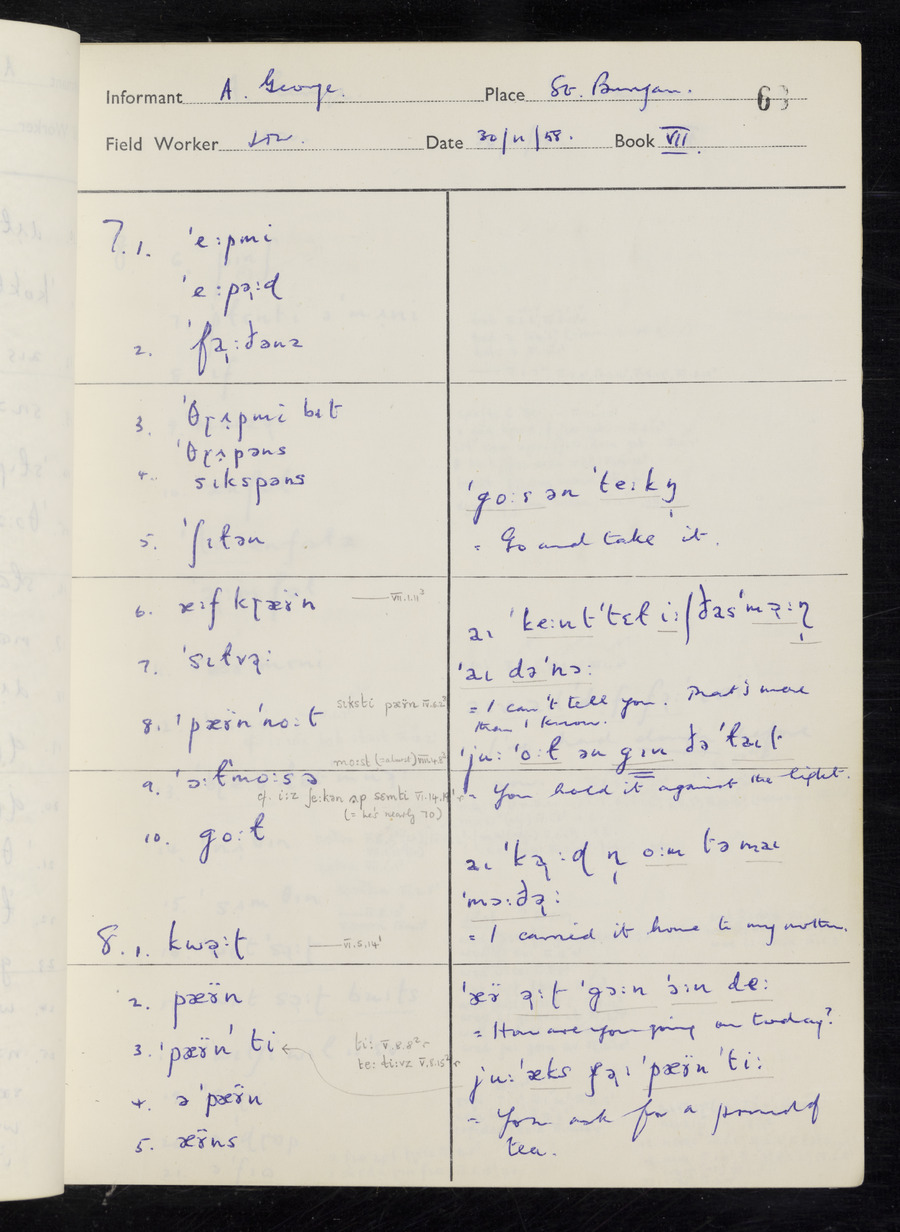 Informant A. George. Place St. Buryan. 63
Field Worker Date 30/11/58. Book VII.
7.1. ˈe:pmi
ˈe:pəɻ:d
2. ˈfəɻ:ðənz
3. ˈθɻɛ̣pmi bɪt
ˈθɻɛ̣pəns
4. sɪkspəns
5. ˈʃɪɫən
6. æ:f kɻæɤ̈ˈn VII.1.11
7. ˈsɪɫvəɻ:
8. ˈpæɤ̈nˈno:t
siksti pæɤ̈n
mo:st (=almost) VIII.4.8
9. ˈɔ:ɫˈmo:s ə
cf. i:z ʃe:kən əp sɛmti VI.14.14
(= he's nearly 70)
10. go:ɫ
8.1. kwəɻ:t VI.5.14
2. pæɤ̈n
3. ˈpæɤ̈nˈ ti
ti: V.8.8
te: ti:vz V.8.15
4. əˈpæɤ̈n
5. æɤ̈ns
ˈgo:s ən ˈte:k n̩
= Go and take it.
aɪ ˈke:nt ˈtɛɫ i: ʃ ðasˈməɻ:n̩
ˈaɪ dəˈnɔ:
= I can't tell you. That's more
than I know.
ˈju: ˈo:ɫ ən gɪn ðə ˈlaɪt
= You hold it against the light.
aɪ ˈkəɻ:d n̩ o:m tə maɪ
ˈmɔ:ðəɻ:
= I carried it home to my mother.
ˈæɤ̈ əɻ:t ˈgɔ:n ˈɔ:n de:
= How are you going on today?
ju: ˈæks fəɻ: ˈpæɤ̈nˈti:
= You ask for a pound of
tea.